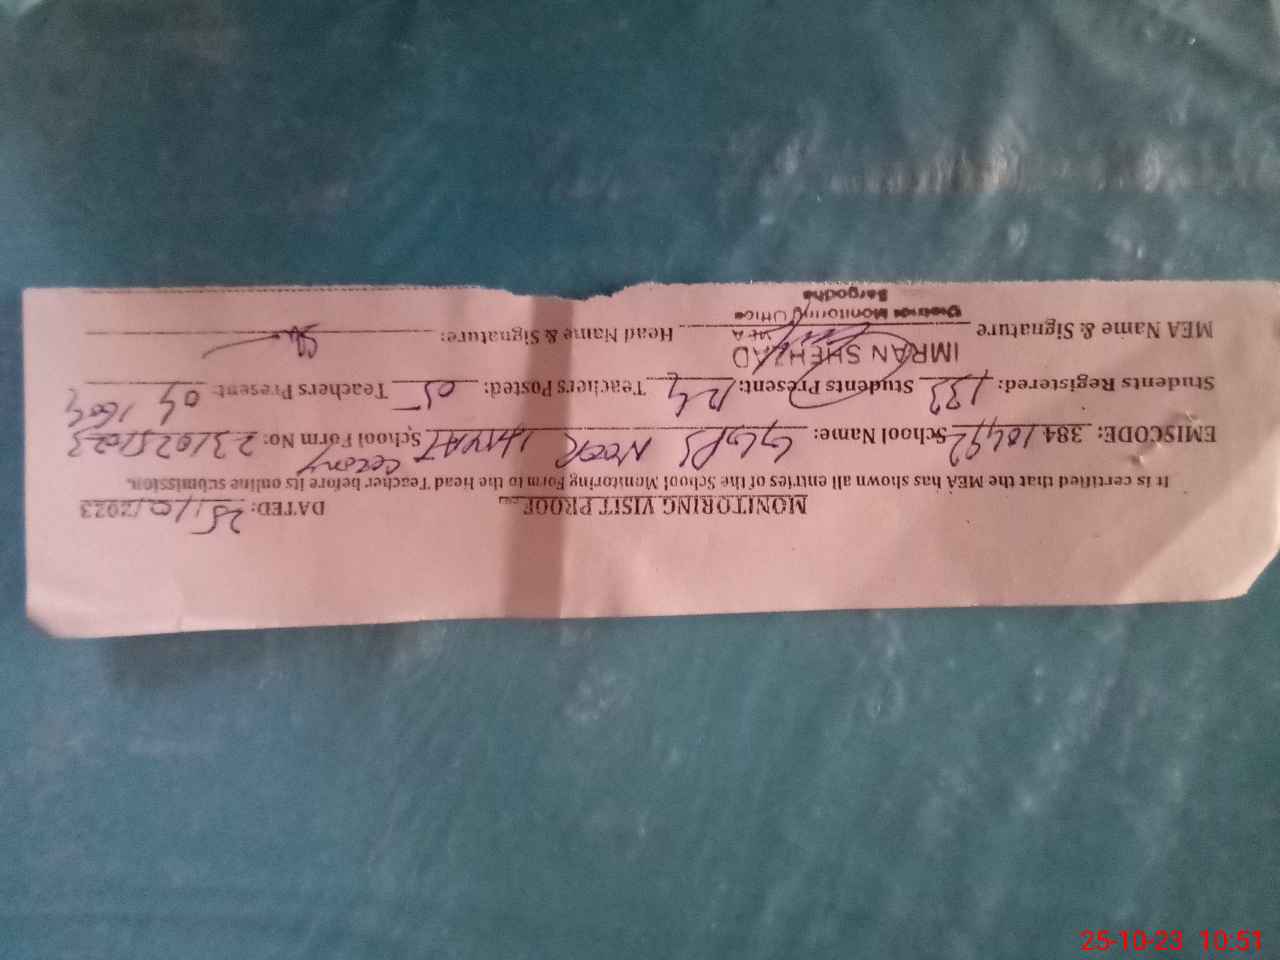 MONITORING VISIT PROOF
DATED: 25/10/2023
It is certified that the MEA has shown all entries of the School Monitoring Form to the Head Teacher before its online submission.
EMISCODE: 384 10492 School Name: GGPS NOOR HAYAT Colony School Form No: 2310251023
Students Registered: 133 Students Present: 124 Teachers Posted: 05 Teachers Present: 04
IMRAN SHEHZAD
MEA Name & Signature MEA Head Name & Signature:
District Monitoring Office
Sargodha
25-10-23 10:51